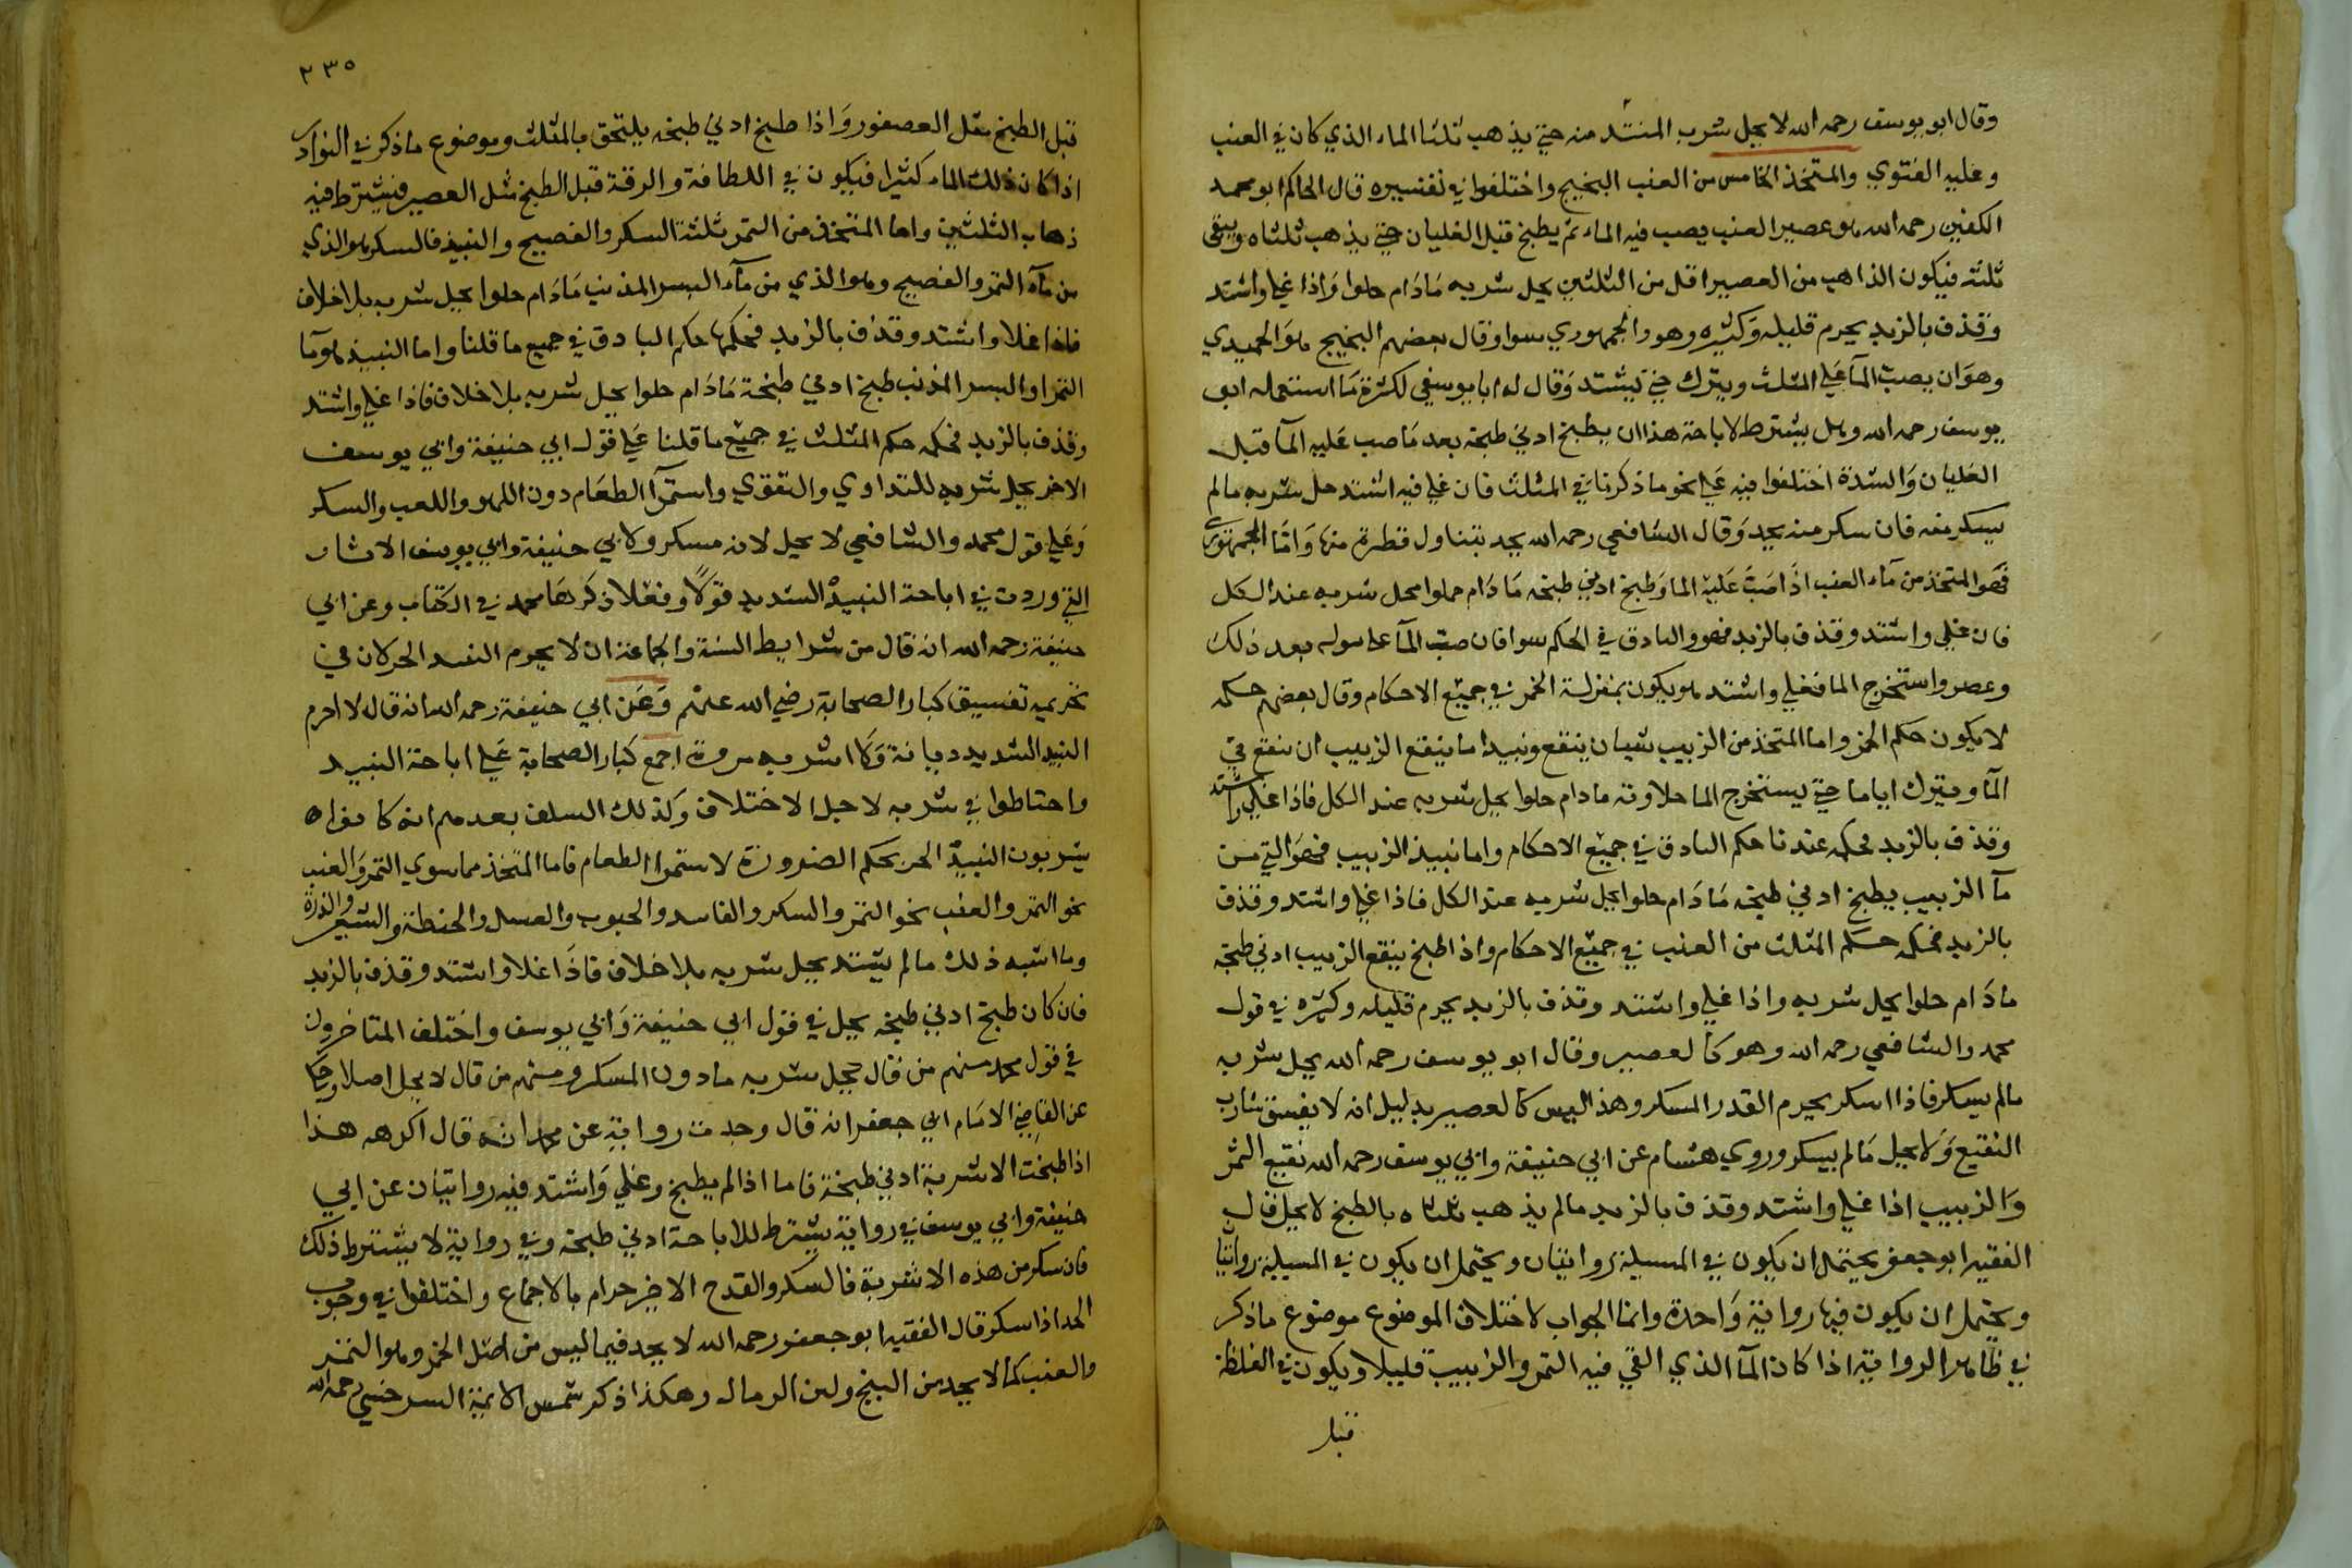 وقال ابو يوسف رحمه الله لا يحل شرب المشتد منه حتي يذهب ثلثا الماء الذي كان في العنب
وعليه الفتوي والمتخذ الخامس من العنب البختج واختلفوا في تفسيره قال الحاكم ابو محمد
الكفين رحمه الله هو عصير العنب يصب فيه الماء ثم يطبخ قبل الغليان حتي يذهب ثلثاه ويبقى
ثلثه فيكون الذاهب من العصير اقل من الثلثين يحل شربه مَادَام حلوا وَاذا غلي واشتد
وقذف بالزبد يحرم قليله وَكثيره وهو والجمهوري سوا وقال بعضهم البختج هو الحميدي
وهوَان يصب المآ عَلي المثلث ويترك حتي يشتد وَقال له ابا يوسفي لكثرة مَا استعمله ابو
يوسف رحمه الله وهل يشترط لاباحة هذا ان يطبخ ادني طبخة بعد مَا صب عَليه المآ قبل
الغليان وَالشدة اختلفوا فيه عَلي نحو ما ذكرنا في المثلث فان غلي فيه اشتد حل شربه مالم
يسكر منه فان سكر منه يحد وَقال الشافعي رحمه الله يحد بتناول قطرة منها وَامَّا الجمهوري
فَهوَ المتخذ من مآء العنب اذَا صَبَّ عَليه الما وَطبخ ادني طبخه مَادَام حلوا يحل شربه عند الكل
فان غلي واشتد وقذف بالزبد فهو والبادق في الحكم سوا فان صب المآ علي بعد ذلك
وعصر واستخرج الما فغلي واشتد هو يكون بمنزلة الخمر في جميع الاحكام وقال بعضهم حكمه
لا يكون حكم الخمر واما المتخذ من الزبيب شيان ينقع ونبيد اما ينقع الزبيب ان ينقع في
المآ ويترك اياما حتي يستخرج الما حلاوته مادام حلوا يحل شربه عند الكل فاذا غلي واشتد
وقذف بالزبد فحكمه عندنا حكم البادق في جميع الاحكام واما نبيذ الزبيب فهوَ التي من
مآ الزبيب يطبخ ادني طبخه مَادَام حلوا يحل شربه عند الكل فاذا غلي واشتد وقذف
بالزبد فحكمه حكم المثلث من العنب في جميع الاحكام واذا طبخ ينقع الزبيب ادني طبخة
مادَام حلوا يحل شربه واذا غلي واشتد وقذف بالزبد يحرم قليله وكثيره في قول
محمد والشافعي رحمه الله وهو كالعصير وقال ابو يوسف رحمه الله يحل شربه
مالم يسكر فاذا اسكر يحرم القدر المسكر وهذا ليس كالعصير بدليل انه لا يفسق شارب
النقيع وَلا يحل مَالم يسكر وروي هشام عن ابي حنيفة وابي يوسف رحمه الله نقيع التمر
وَالزبيب اذا غلي واشتد وقذف بالزبد مالم يذهب ثلثاه بالطبخ لا يحل قال
الفقيه ابو جعفر يحتمل ان يكون في المسيلة روايتان ويحتمل ان يكون في المسيلة روايتان
ويحتمل ان يكون فيها رواية وَاحدة وانما الجواب لاختلاف الموضوع موضوع ما ذكر
في ظاهر الرواية اذا كان المآ الذي القي فيه التمر والزبيب قليلا ويكون في الغلظة
قبل
٢٣٥
قبل الطبخ مثل العصفور وَاذا طبخ ادني طبخه يلتحق بالمثلث وموضوع ما ذكر في النوادر
اذا كان ذلك الماء كثيرا فيكون في اللطافة والرقة قبل الطبخ مثل العصير فيشترط فيه
ذهاب الثلثين واما المتخذ من التمر ثلثة السكر والفصيح والنبيذ فالسكر هو الذي
من مآء التمر والفصيح وهو الذي من مآء البسر المذنب مَادَام حلوا يحل شربه بلا خلاف
فاذا غلا واشتد وقذف بالزبد فحكمها حكم البادق في جميع ما قلنا واما النبيذ هو مآ
التمر او البسر المذنب طبخ ادني طبخة مَادَام حلوا يحل شربه بلا خلاف فاذا غلي واشتد
وقذف بالزبد فحكمه حكم المثلث في جميع ما قلنا عَلي قول ابي حنيفة وابي يوسف
الاخر يحل شربه للتداوي والتقوي واستمرآ الطعَام دون اللهو واللعب والسكر
وَعَلي قول محمد والشافعي لا يحل لانه مسكر ولابي حنيفة وابي يوسف الاثار
التي وردت في اباحة النبيذ الشديد قولًا وفعلا ذكرهَا محمد في الكتاب وعن ابي
حنيفة رحمه الله انه قال من شرايط السنة والجماعة ان لا يحرم النبيد الجر لان في
تحريمه تفسيق كبار الصحابة رضي الله عنهم وَعَن ابي حنيفة رحمه الله انه قال لا احرم
النبيد الشديد ديانة وَلا اشربه مروة اجمع كبار الصحابة عَلي اباحة النبيد
واحتاطوا في شربه لاجل الاختلاف وكذلك السلف بعدهم انه كانوا
يشربون النبيذ الجر بحكم الضرورة لاستمرا الطعام فاما المتخذ مما سوي التمر وَالعنب
نحو التمر والعنب نحو التمر والسكر والفاسد والحبوب والعسل والحنطة والشعير والذرة
وما اشبه ذلك مالم يشتد يحل شربه بلا خلاف فاذَا غلا واشتد وقذف بالزبد
فان كان طبخ ادني طبخه يحل في قول ابي حنيفة وَابي يوسف واختلف المتاخرون
في قول محمد منهم من قال يحل شربه مادون المسكر ومنهم من قال لا يحل اصلا وحكي
عن القاضي الامَام ابي جعفر انه قال وجدت رواية عن محمد انه قال اكره هذا
اذا طبخت الاشربة ادني طبخة فاما اذا لم يطبخ وغلي وَاشتد فيه روايتان عن ابي
حنيفة وابي يوسف في رواية يشترط للاباحة ادني طبخة وفي رواية لا يشترط ذلك
فان سكر من هذه الاشربة فالسكر والقدح الاخير حرام بالاجماع واختلفوا في وجوب
الحد اذا سكر قال الفقيه ابو جعفر رحمه الله لا يحد فيما ليس من اصل الخمر وهو التمر
والعنب كما لا يحد من البنج ولبن الرماك وهكذا ذكر شمس الائمة السرخسي رحمه الله